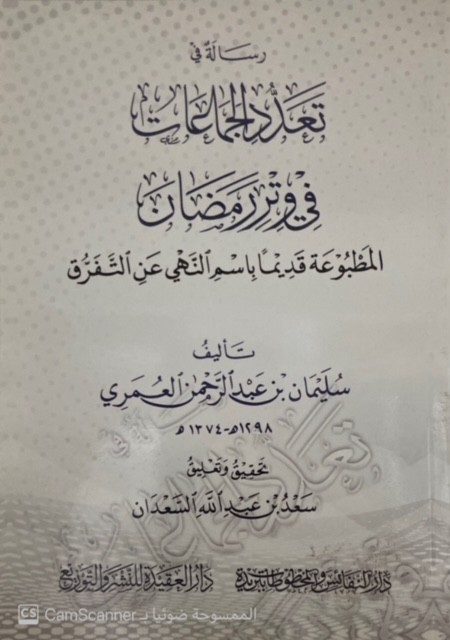 رسالة في
تعدد الجماعات
في وتر رمضان
المطبوعة قديمًا باسم النهي عن التفرق
تأليف
سليمان بن عبد الرحمن العمري
١٢٩٨هـ-١٣٧٤هـ
تحقيق وتعليق
سعد بن عبد الله السعدان
دار النفائس والمخطوطات ببريدة دار العقيدة للنشر والتوزيع
CS الممسوحة ضوئيا بـ CamScanner